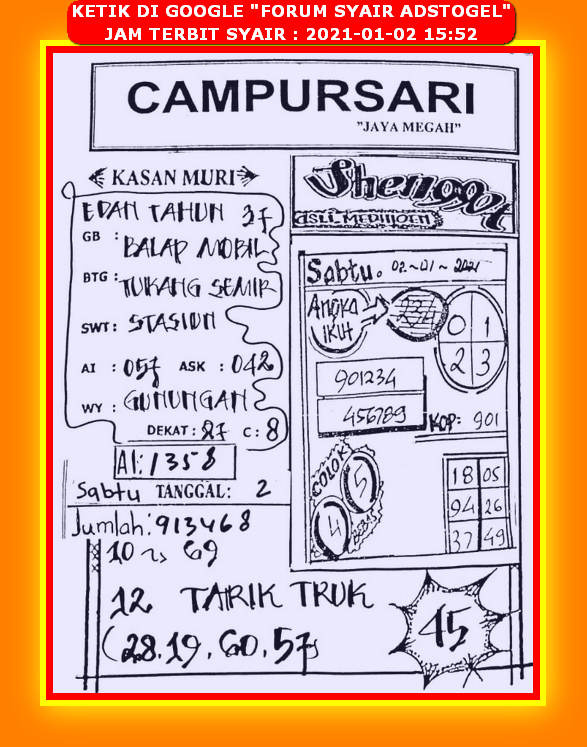 KETIK DI GOOGLE "FORUM SYAIR ADSTOGEL"
JAM TERBIT SYAIR : 2021-01-02 15:52
CAMPURSARI
"JAYA MEGAH"
KASAN MURI
EDAN TAHUN 37
GB : BALAP MOBIL
BTG : TUKANG SEMIR
SWT : STASIUN
AI : 057 ASK : 042
WY : GUNUNGAN
DEKAT : 27 C : 8
AI : 1358
Sabtu TANGGAL : 2
Jumlah : 913468
10 ~ 69
12 TARIK TRUK
(28.19.60.57)
45
Shenggot
ASLI MEDIHOEN
Sabtu. 02~01~2021
ANGKA LIKUH
234
0 1
2 3
901234
456789
KOP: 901
COLOK
5
4
BEBAS
18 05
94 26
37 49